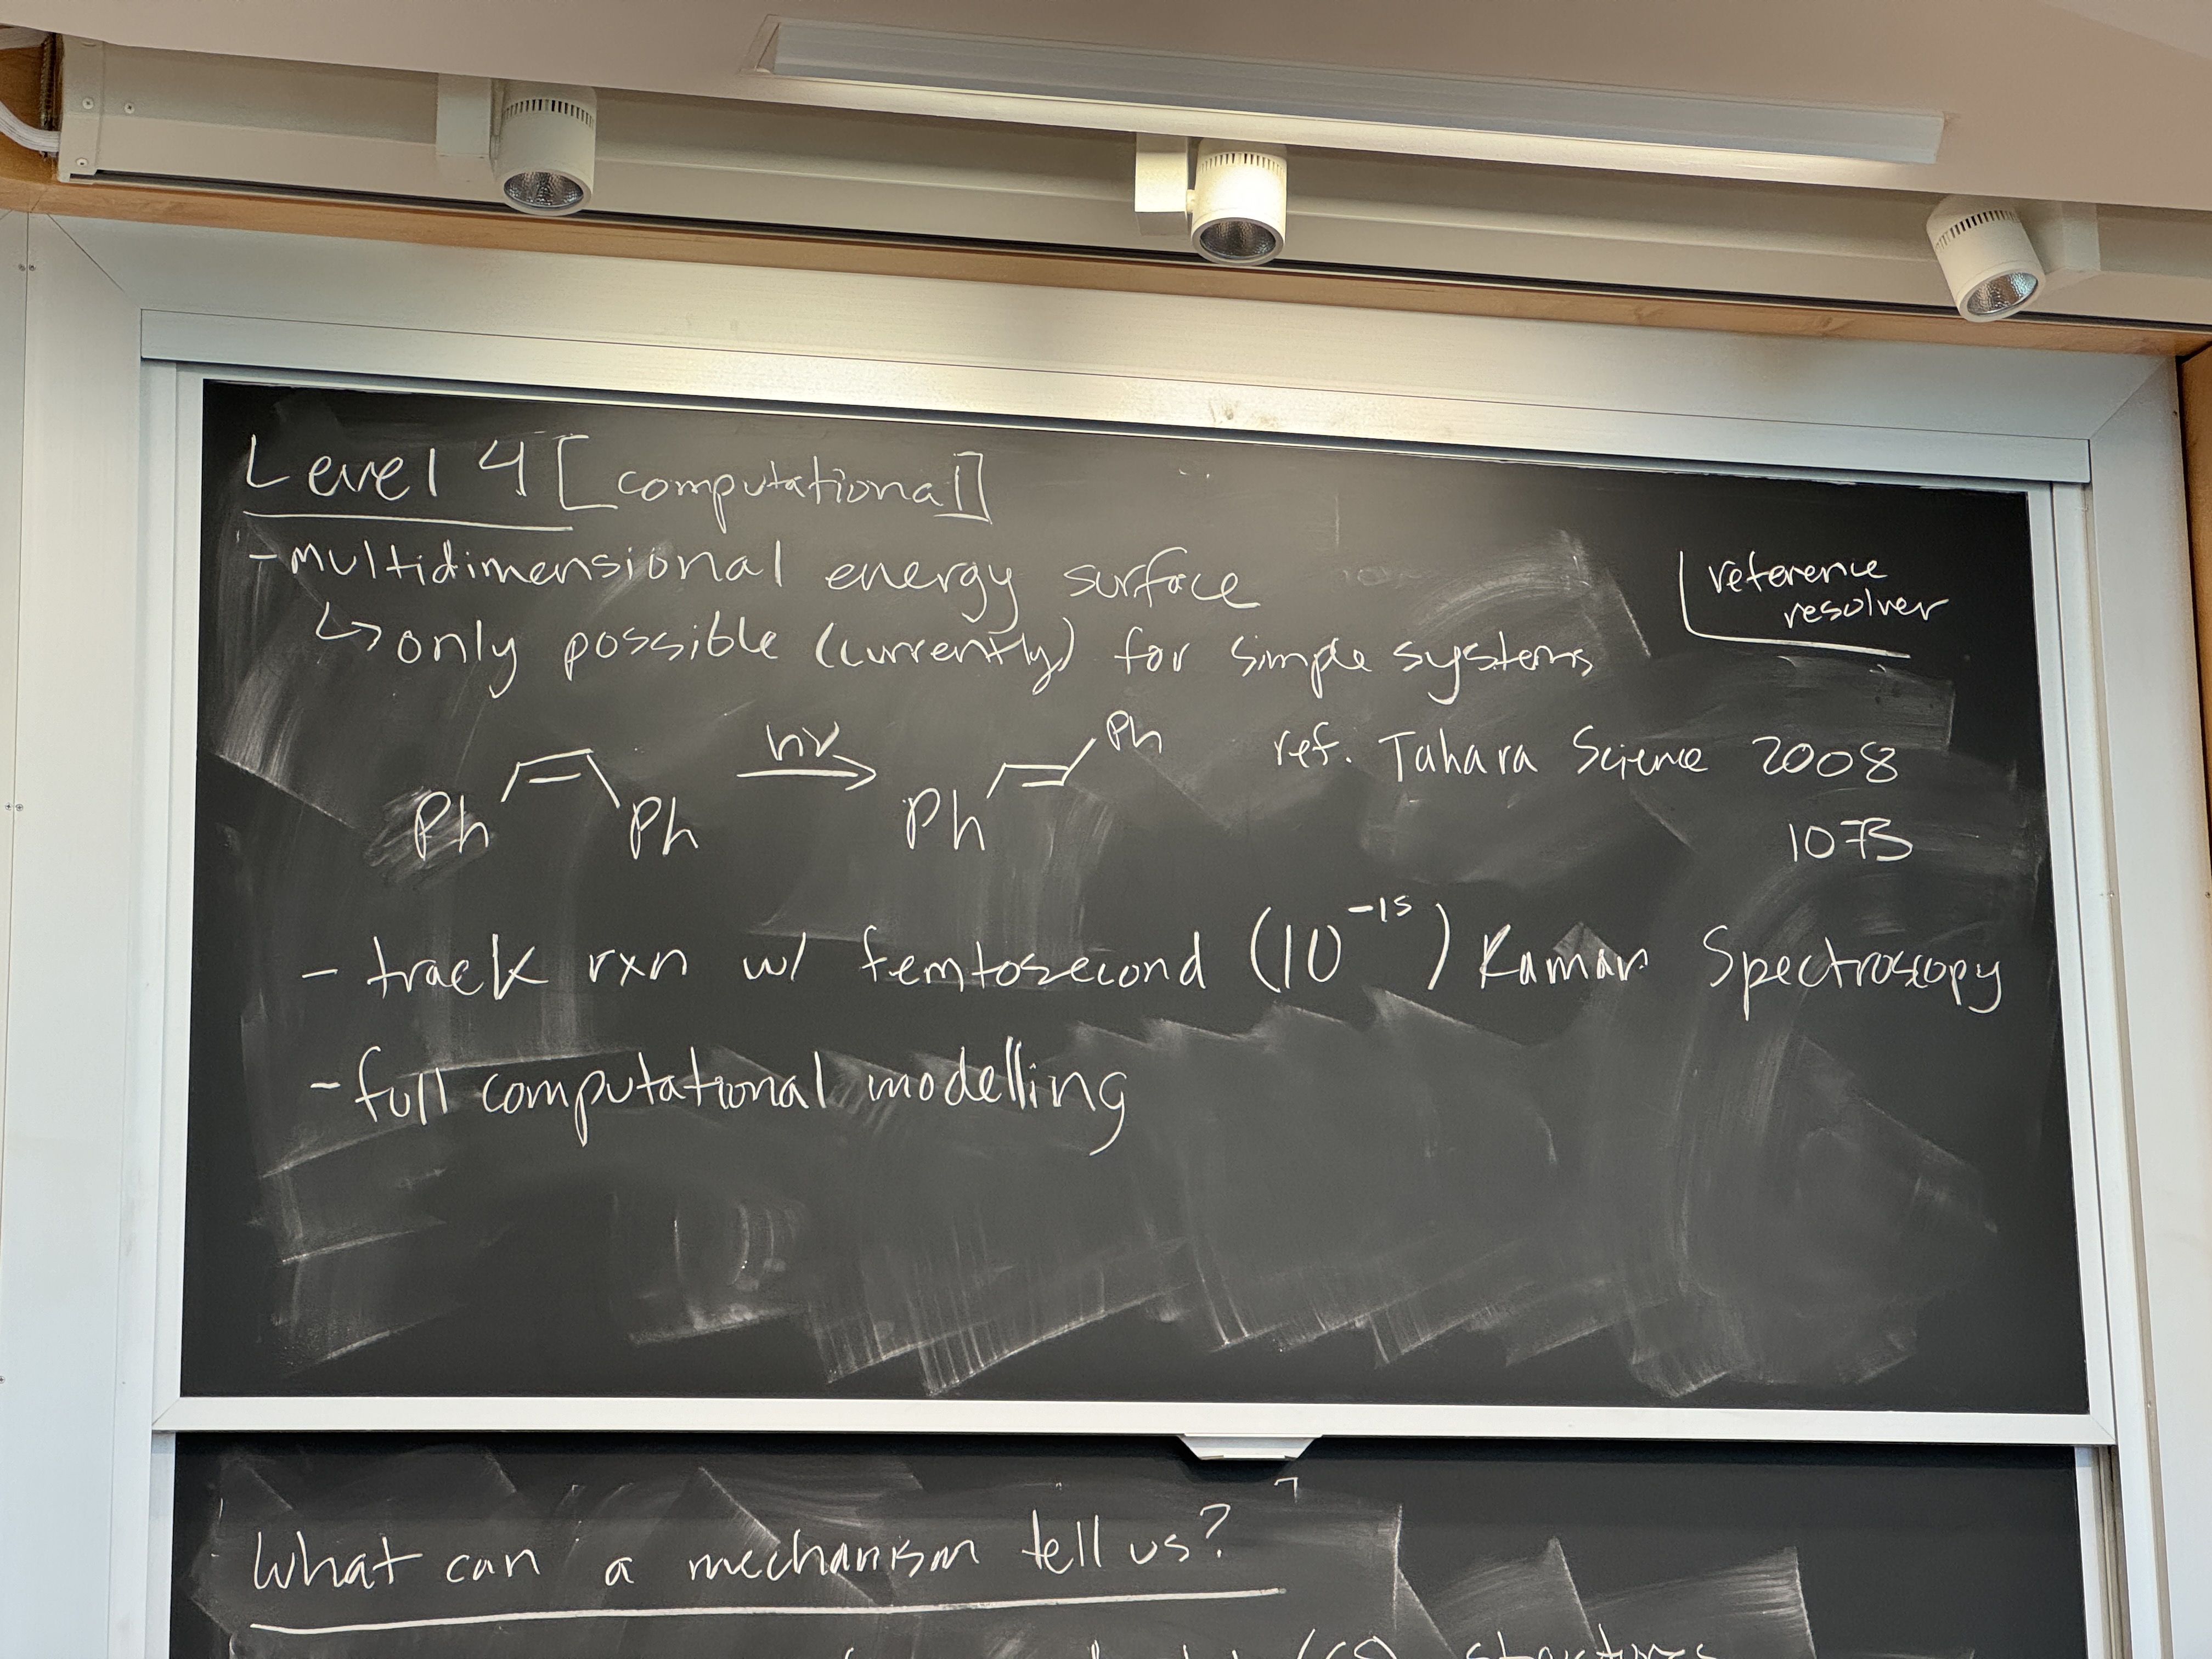 Level 4 [computational]
- multidimensional energy surface
↳ only possible (currently) for simple systems
reference
resolver
Ph Ph hν Ph Ph
ref. Tahara Science 2008
1073
- track rxn w/ femtosecond (10⁻¹⁵) Raman Spectroscopy
- full computational modelling
What can a mechanism tell us?
structures